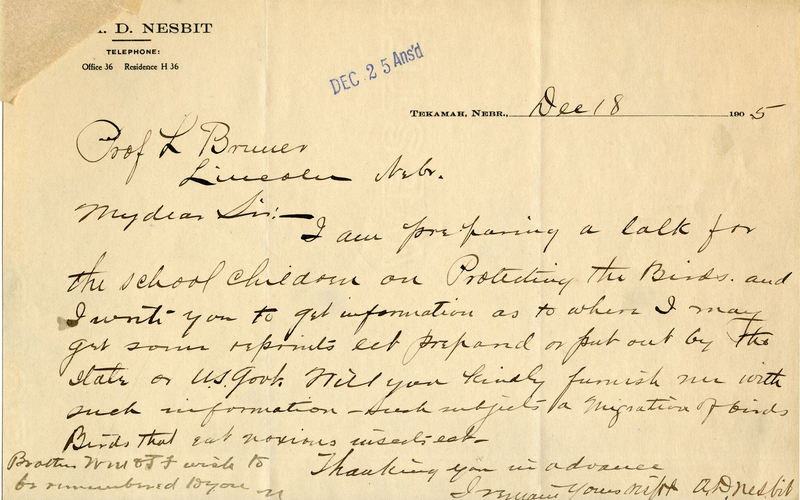 . D. NESBIT
TELEPHONE:
Office 36 Residence H 36
DEC 25 Ans'd
TEKAMAH, NEBR., Dec 18 1905
Prof L Bruner
Lincoln Nebr.
My dear Sir:—
I am preparing a talk for
the school children on Protecting the Birds. and
I write you to get information as to where I may
get some reprints ect prepared or put out by the
state or U.S. Govt. Will you kindly furnish me with
such information - such subjects a Migration of birds
Birds that eat noxious insects ect-
Thanking you in advance
I remain Yours A.D. Nesbit
Brothers Will & wish to
be remembered to you